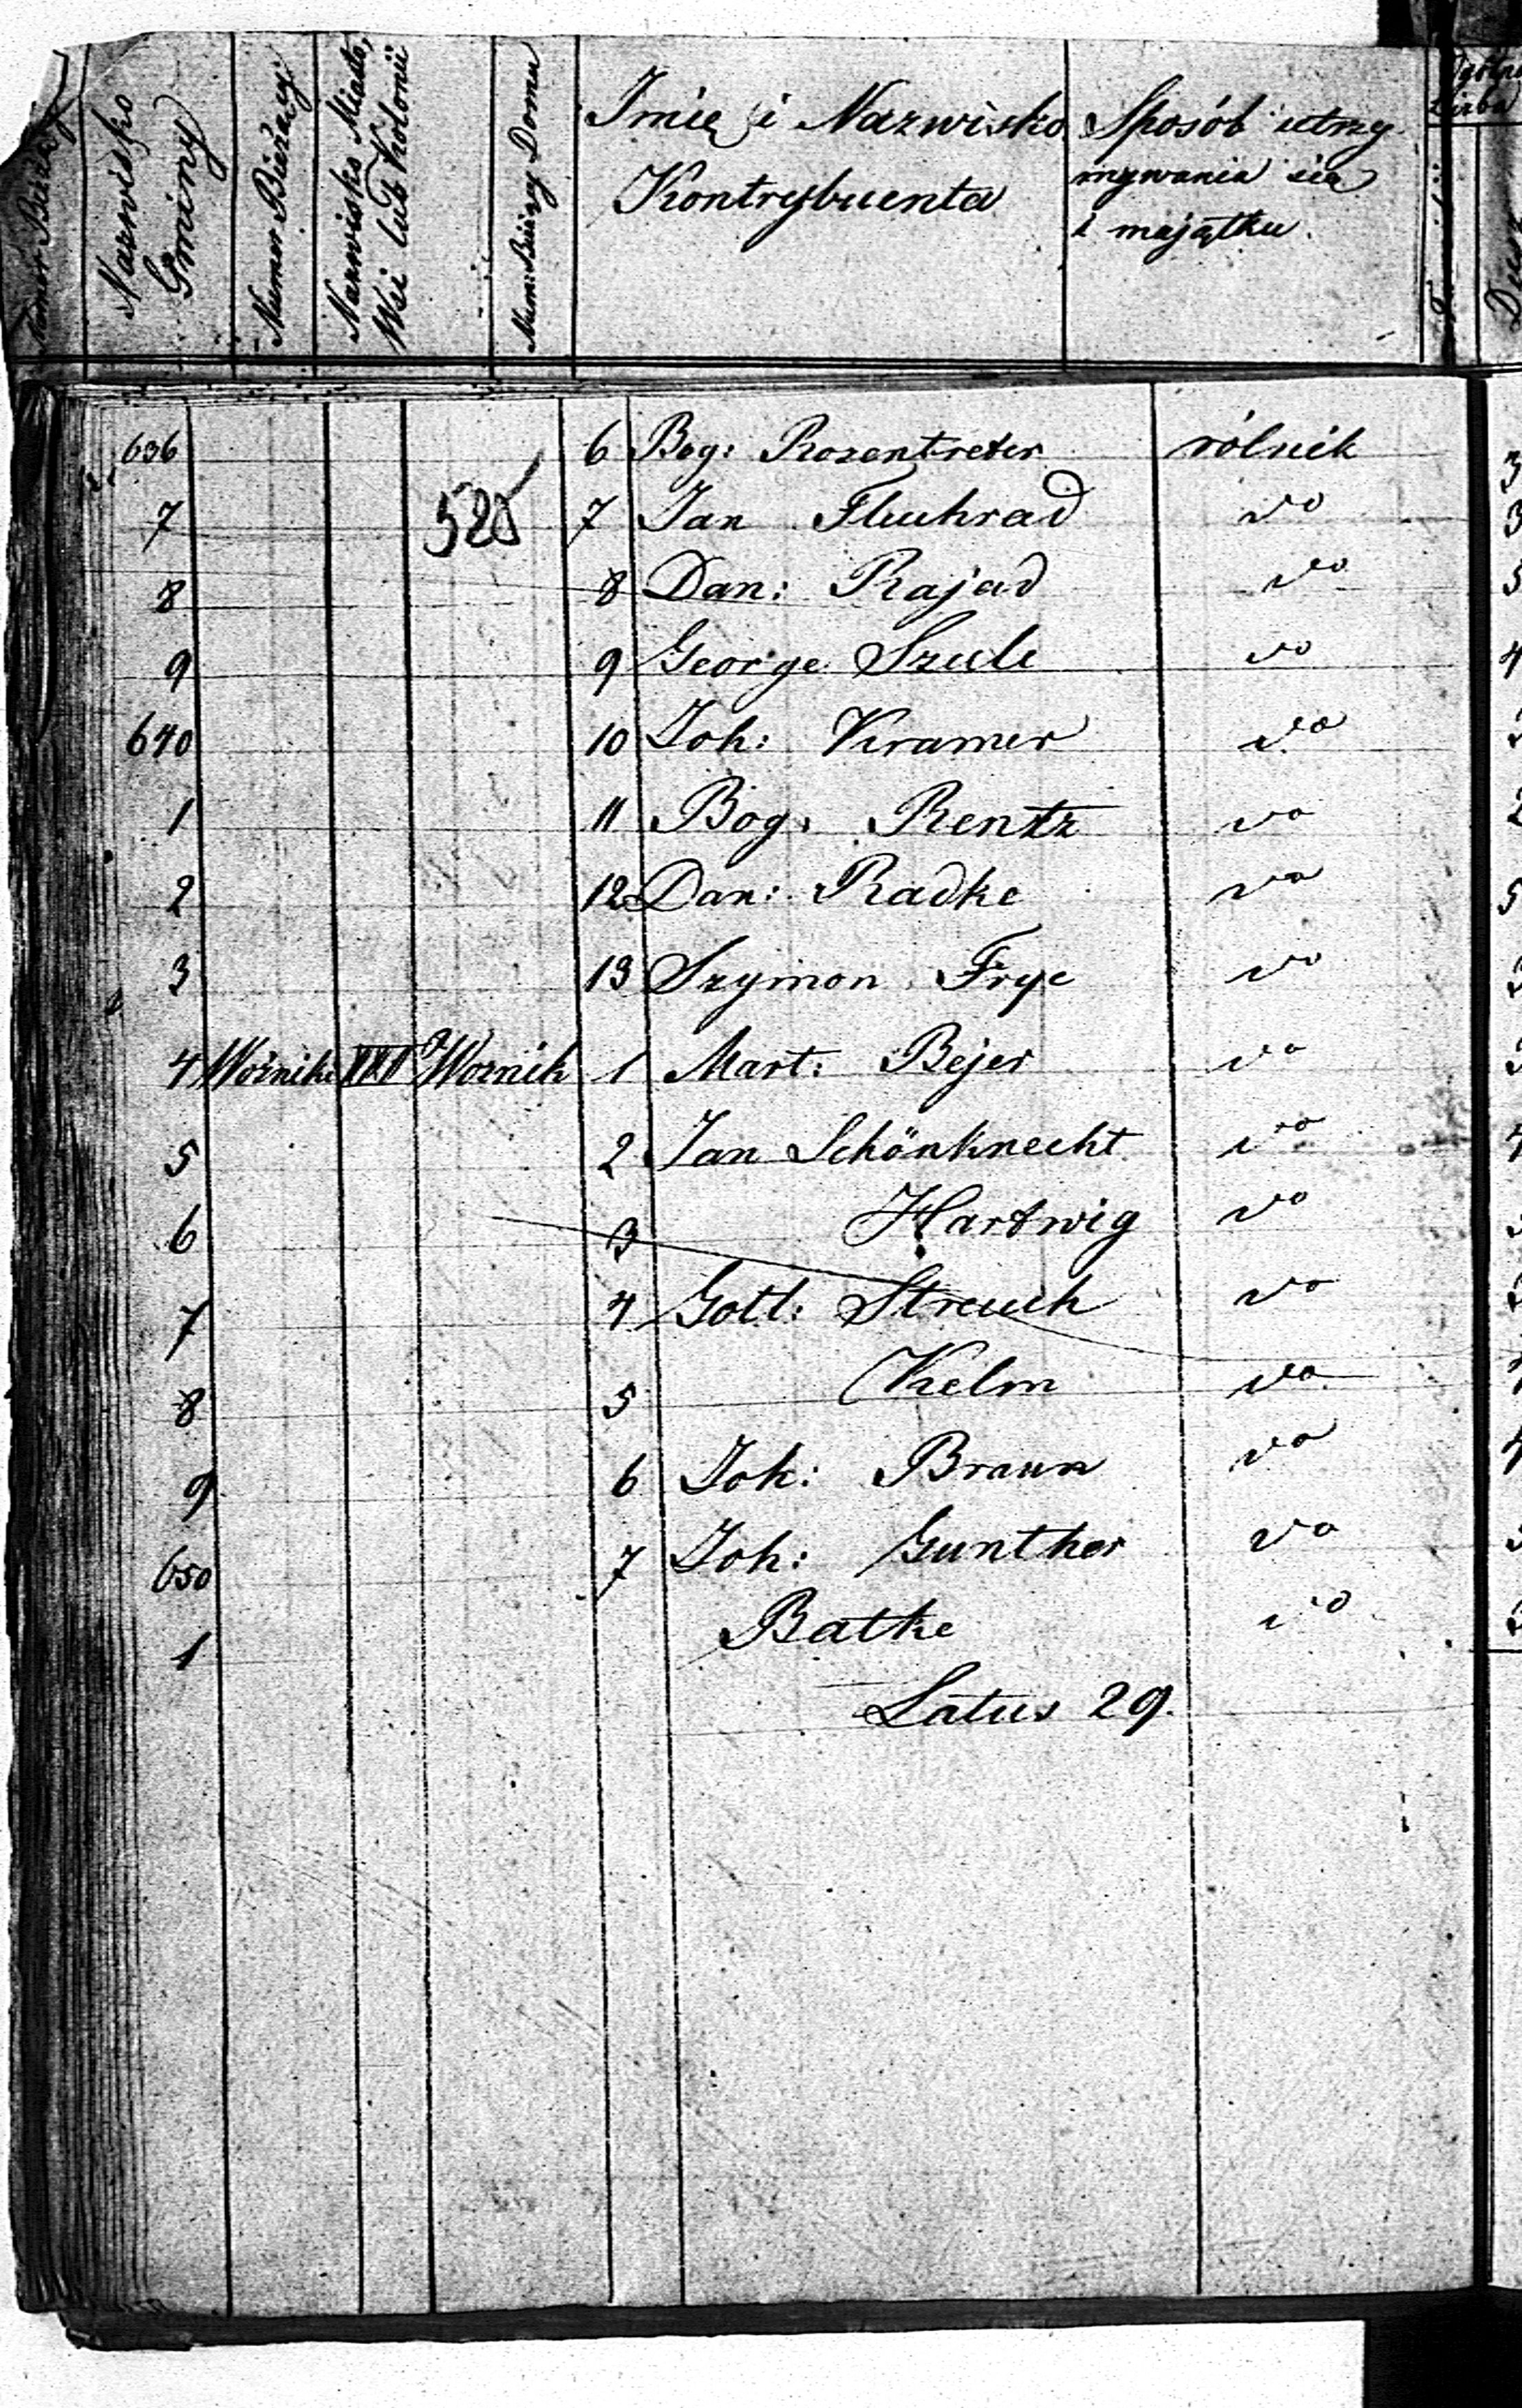 Numer Bieżący
Nazwisko
Gminy
Numer Bieżący
Nazwisko Miasta,
Wsi lub Kolonii
Num: Bieżący Domu
Imię i Nazwisko
Kontrybuenta
Sposób utrzy
mywania się
i majątku.
636 6 Bog: Rozentreter rólnik
7 525 7 Jan Fluhrad do
8 8 Dan: Rajad do
9 9 George Szulc do
640 10 Joh: Kramer do
1 11 Bog: Rentz do
2 12 Dan: Radke do
3 13 Szymon Frye do
4 Woźniki Woznik 1 Mart: Bejer do
5 2 Jan Schönknecht do
6 3 Hartwig do
7 4 Gotl: Streuch do
8 5 Kelm do
9 6 Joh: Braun do
650 7 Joh: Gunther do
1 Batke do
Latus 29.